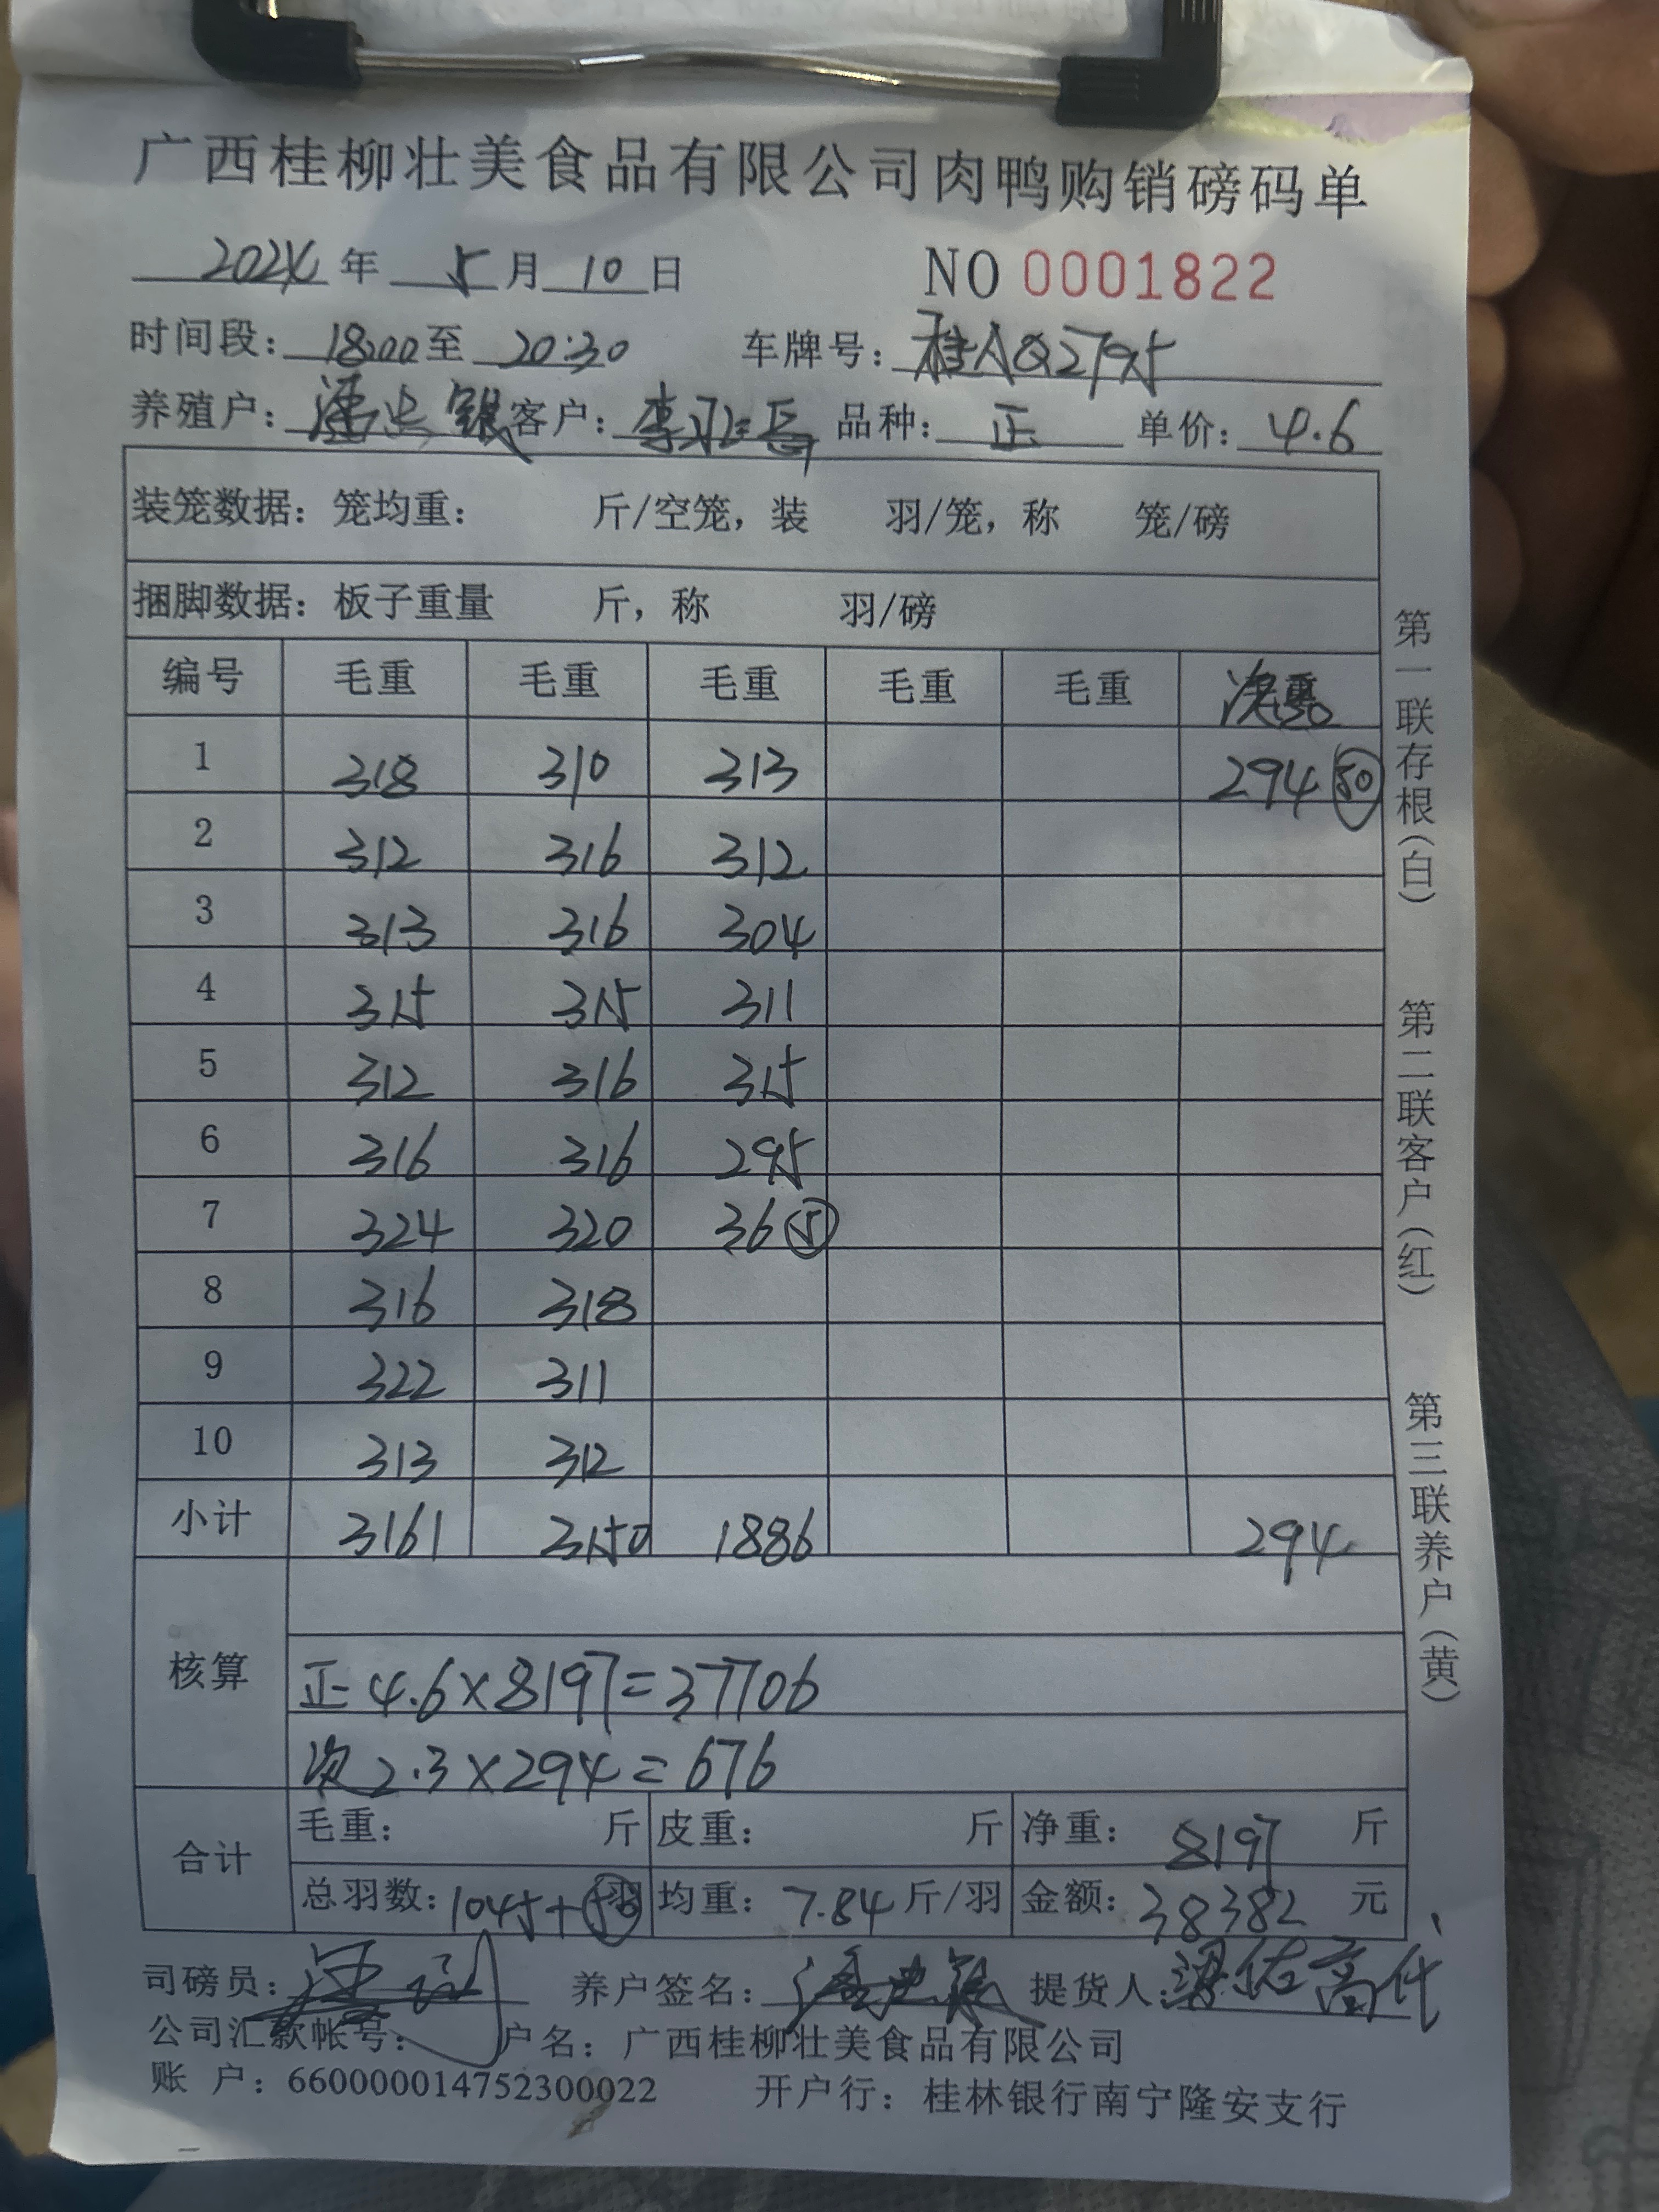 广西桂柳壮美食品有限公司肉鸭购销磅码单
2024 年 5 月 10 日 NO 0001822
时间段: 18:00 至 20:30 车牌号: 桂AQ2795
养殖户: 客户: 李 品种: 正 单价: 4.6
装笼数据: 笼均重: 斤/空笼, 装 羽/笼, 称 笼/磅
捆脚数据: 板子重量 斤, 称 羽/磅
编号 毛重 毛重 毛重 毛重 毛重 次
1 318 310 313 294 50
2 312 316 312
3 313 316 304
4 315 315 311
5 312 316 315
6 316 316 295
7 324 320 36 5
8 316 318
9 322 311
10 313 312
小计 3161 3150 1886 294
核算
正 4.6×8197=37706
次 2.3×294=676
合计 毛重: 斤 皮重: 斤 净重: 8197 斤
总羽数: 1045+50 羽 均重: 7.84 斤/羽 金额: 38382 元
司磅员: 养户签名: 提货人:
公司汇款帐号: 户名: 广西桂柳壮美食品有限公司
账 户: 660000014752300022 开户行: 桂林银行南宁隆安支行
第一联存根(白) 第二联客户(红) 第三联养户(黄)